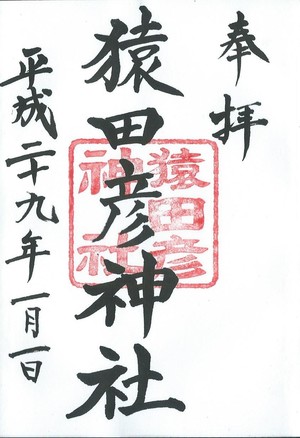 奉拝
猿田彦神社
猿田彦
神社
平成二十九年一月一日